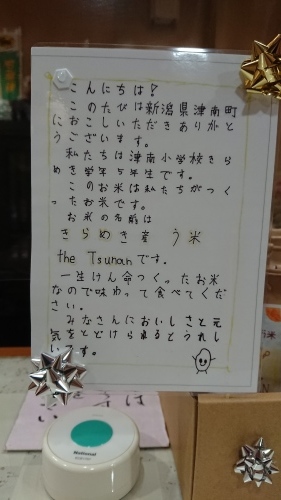 こんにちは!
このたびは新潟県津南町
におこしいただきありがと
うございます。
私たちは津南小学校きら
めき学年5年生です。
このお米は私たちがつく
ったお米です。
お米の名前は
きらめき産 う米
the Tsunanです。
一生けん命つくったお米
なので味わって食べてくだ
さい。
みなさんにおいしさと元
気をとどけられるとうれし
いです。
National